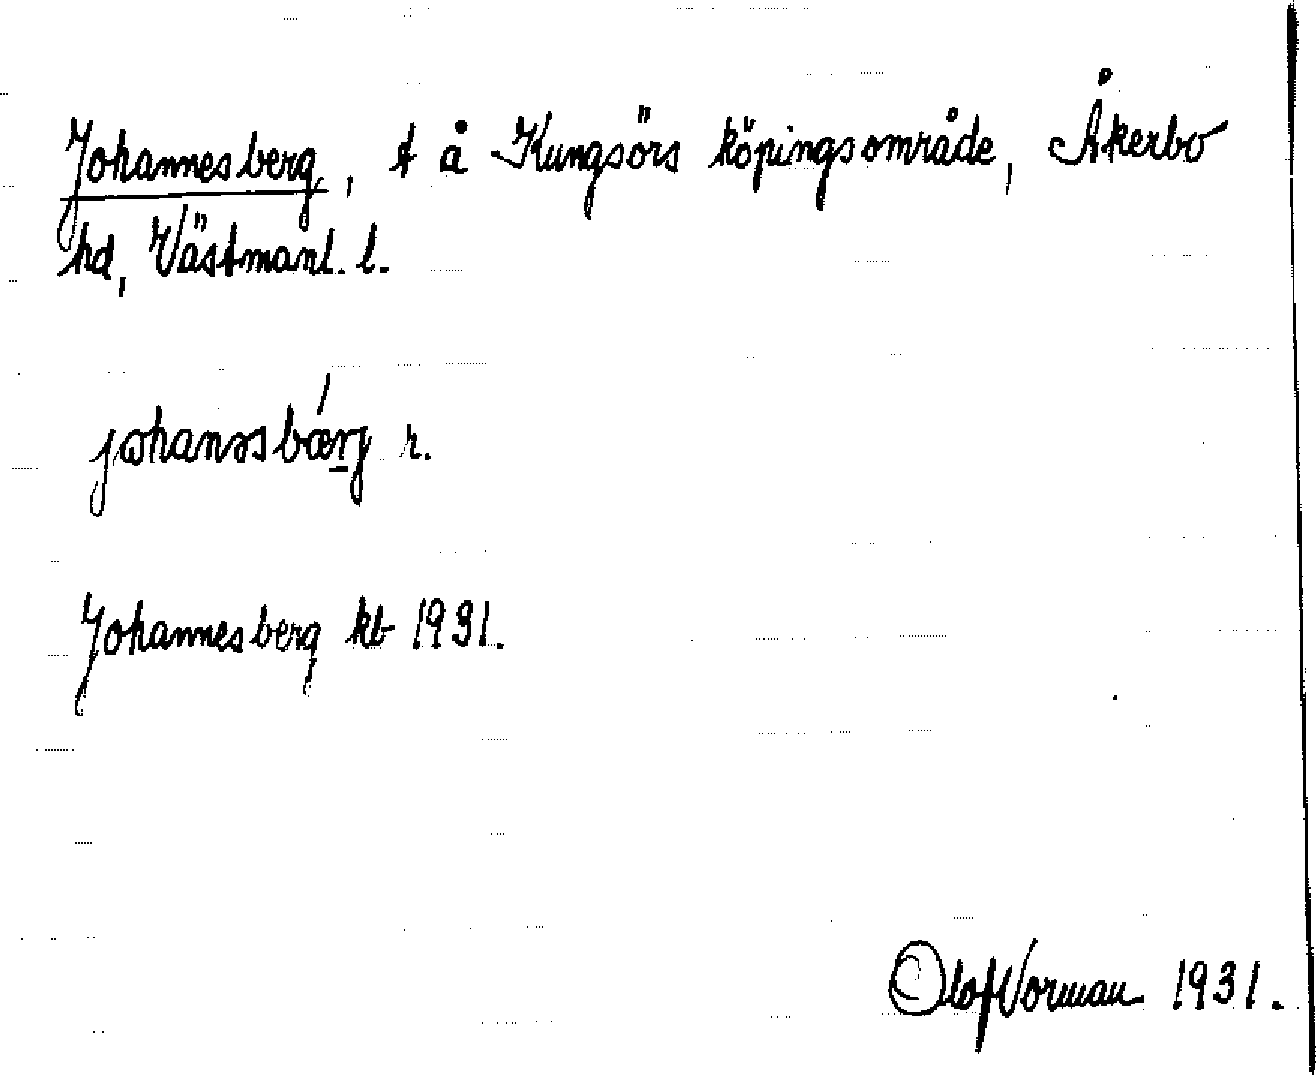 Johannesberg, t å Kungsörs köpingsområde, Åkerbo
hd, Västmanl. l.
johanəsbárg r.
Johannesberg kb 1931.
Olof Vorman 1931.